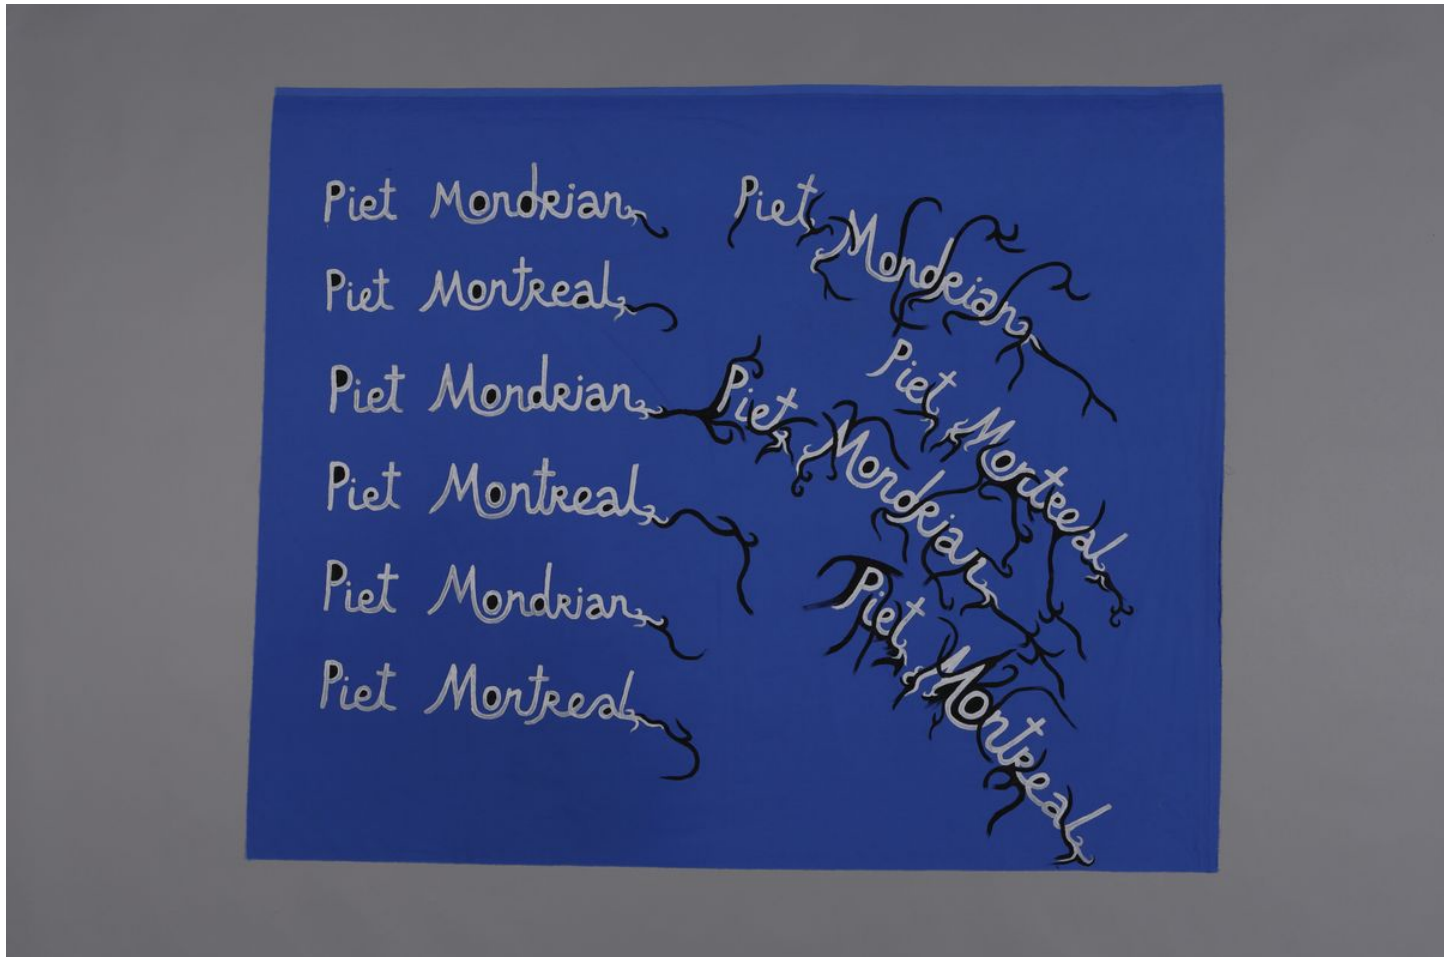 Piet Mondrian
Piet Montreal
Piet Mondrian
Piet Montreal
Piet Mondrian
Piet Montreal
Piet Mondrian
Piet Montreal
Piet Mondrian
Piet Montreal